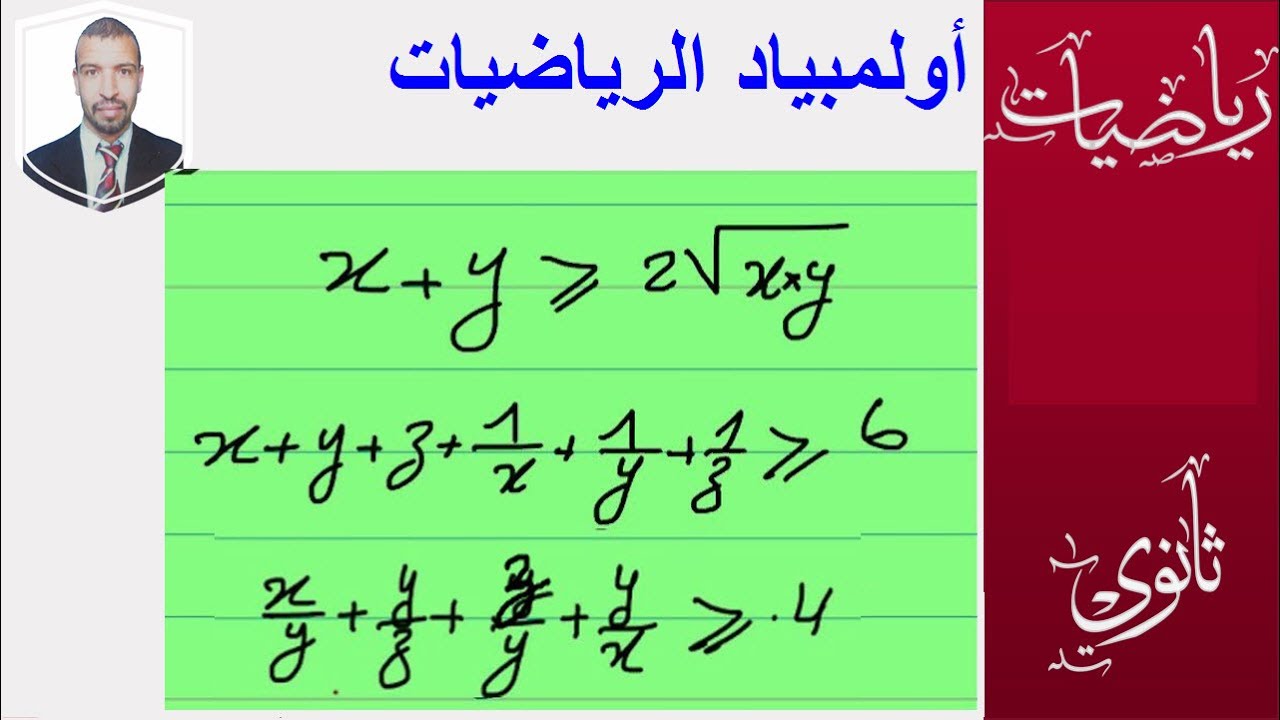 أولمبياد الرياضيات
رياضيات
x + y ⩾ 2√x×y
x + y + z + 1/x + 1/y + 1/z ⩾ 6
x/y + y/z + z/y + y/x ⩾ .4
ثانوي